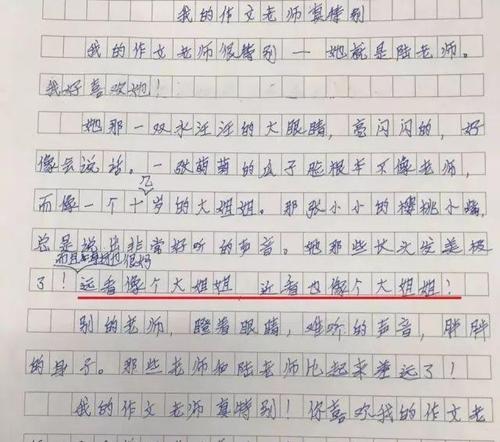 我的作文老师真特别
我的作文老师很特别——她就是陆老师。
我好喜欢她！
她那一双水汪汪的大眼睛，亮闪闪的，好
像会说话。一张萌萌的瓜子脸根本不像老师，
而像一个十几岁的大姐姐。那张小小的樱桃小嘴，
总是说出非常好听的声音。她那些长头发美极
了！而且身材也很好
远看像个大姐姐，近看也像个大姐姐！
别的老师，瞪着眼睛，难听的声音，胖胖
的身子。那些老师和陆老师比起来差远了！
我的作文老师真特别！你喜欢我的作文老